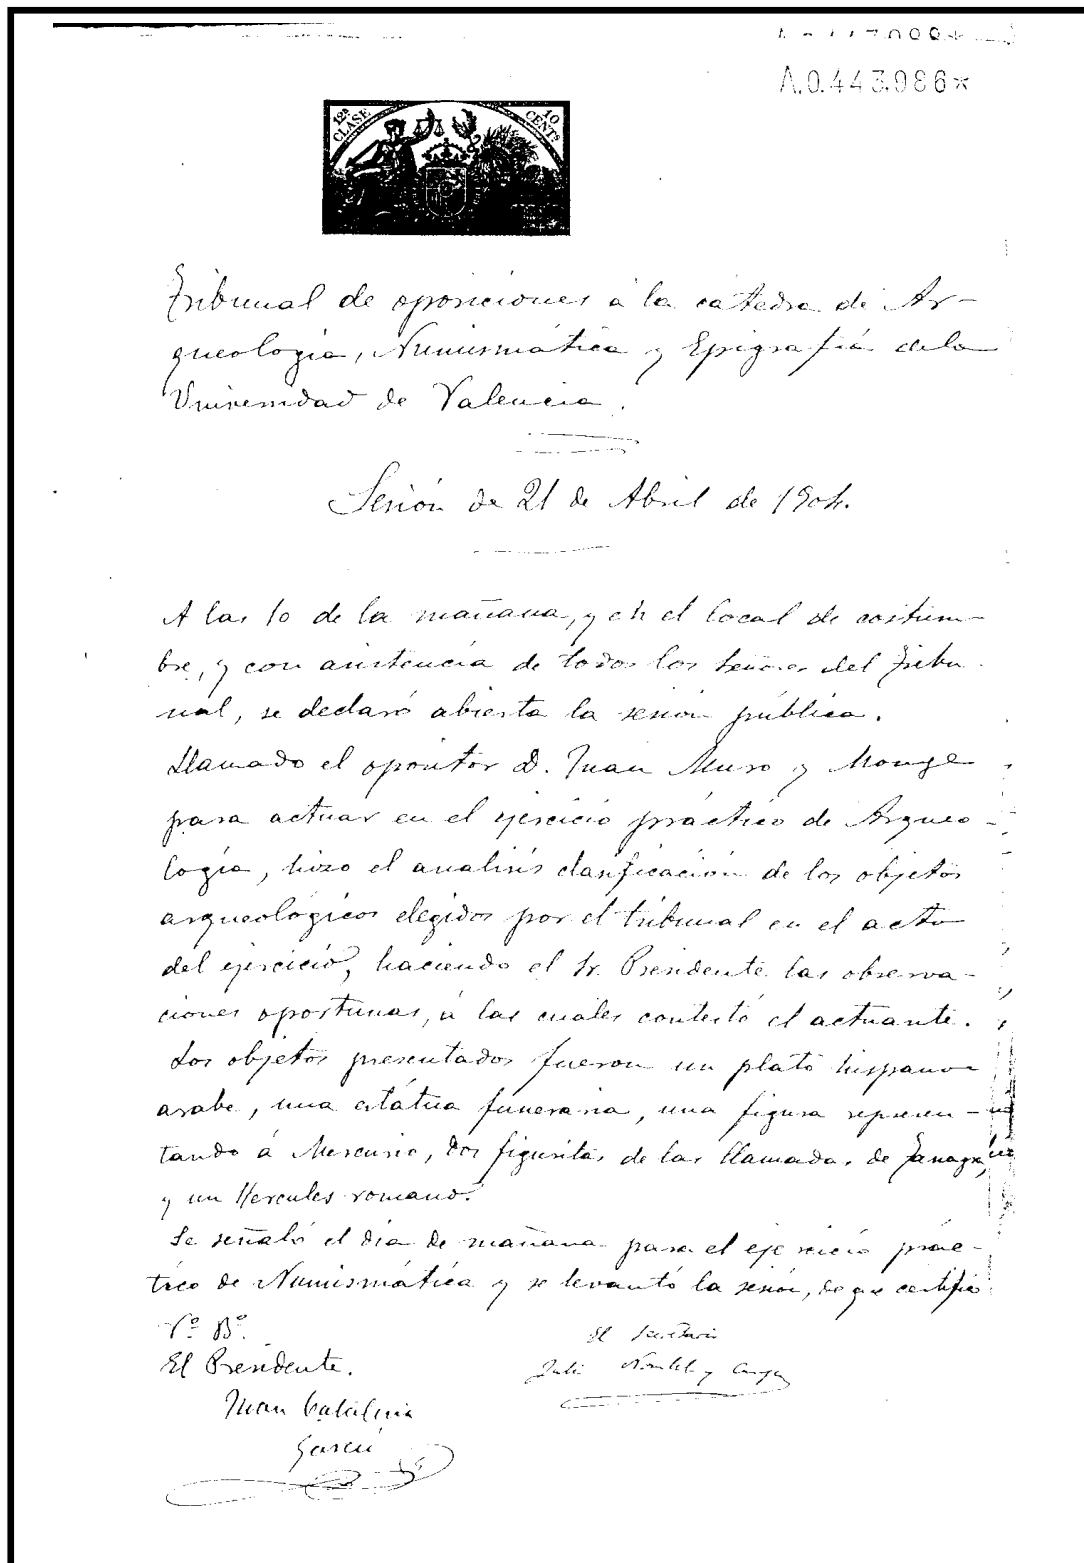 A.0.443.086*
12ª CLASE
10 CENTS
Tribunal de oposiciones á la cátedra de Ar-
queología, Numismática y Epigrafía de la
Universidad de Valencia.
Sesión de 21 de Abril de 1904.
A las 10 de la mañana, y en el local de costum-
bre, y con asistencia de todos los señores del Tribu-
nal, se declaró abierta la sesión pública.
Llamado el opositor D. Juan Muro y Monge
para actuar en el ejercicio práctico de Arqueo-
logía, hizo el analisis clasificación de los objetos
arqueológicos elegidos por el tribunal en el acto
del ejercicio, haciendo el Sr. Presidente las observa-
ciones oportunas, á las cuales contestó el actuante.
Los objetos presentados fueron un plato hispano-
arabe, una estátua funeraria, una figura represen-
tando á Mercurio, dos figuritas de las llamadas de Tanagra,
y un Hercules romano.
Se señaló el día de mañana para el ejercicio prác-
tico de Numismática y se levantó la sesión, de que certifico
Vº Bº.
El Presidente.
Juan Catalina
García
El Secretario
Julio y